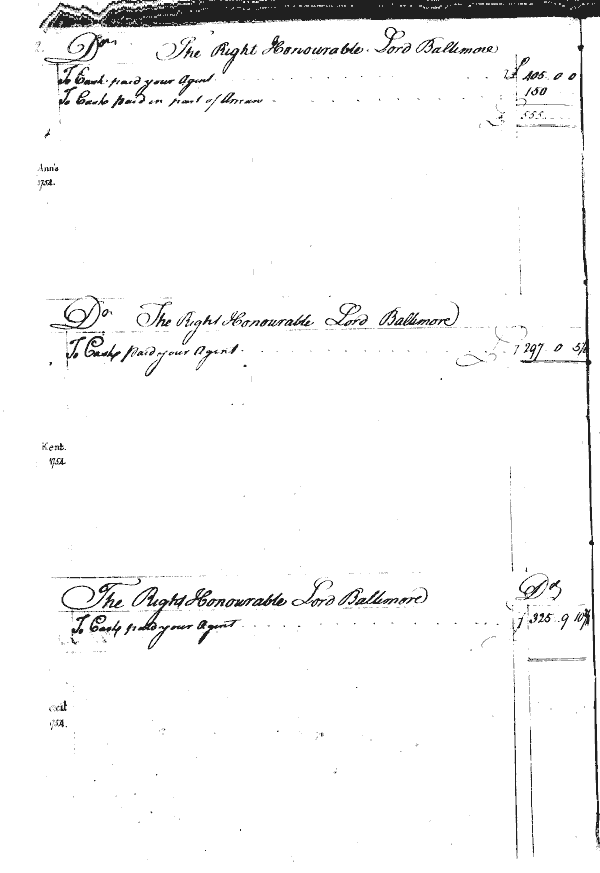 Dr. The Right Honourable Lord Baltimore
To Cash paid your Agent £ 405 0 0
To Cash paid in part of 150
£ 555
Ann's
1754.
Dr. The Right Honourable Lord Baltimore
To Cash paid your Agent 297 0
Kent.
1754.
The Right Honourable Lord Baltimore Dr
To Cash paid your Agent 325 9
1754.